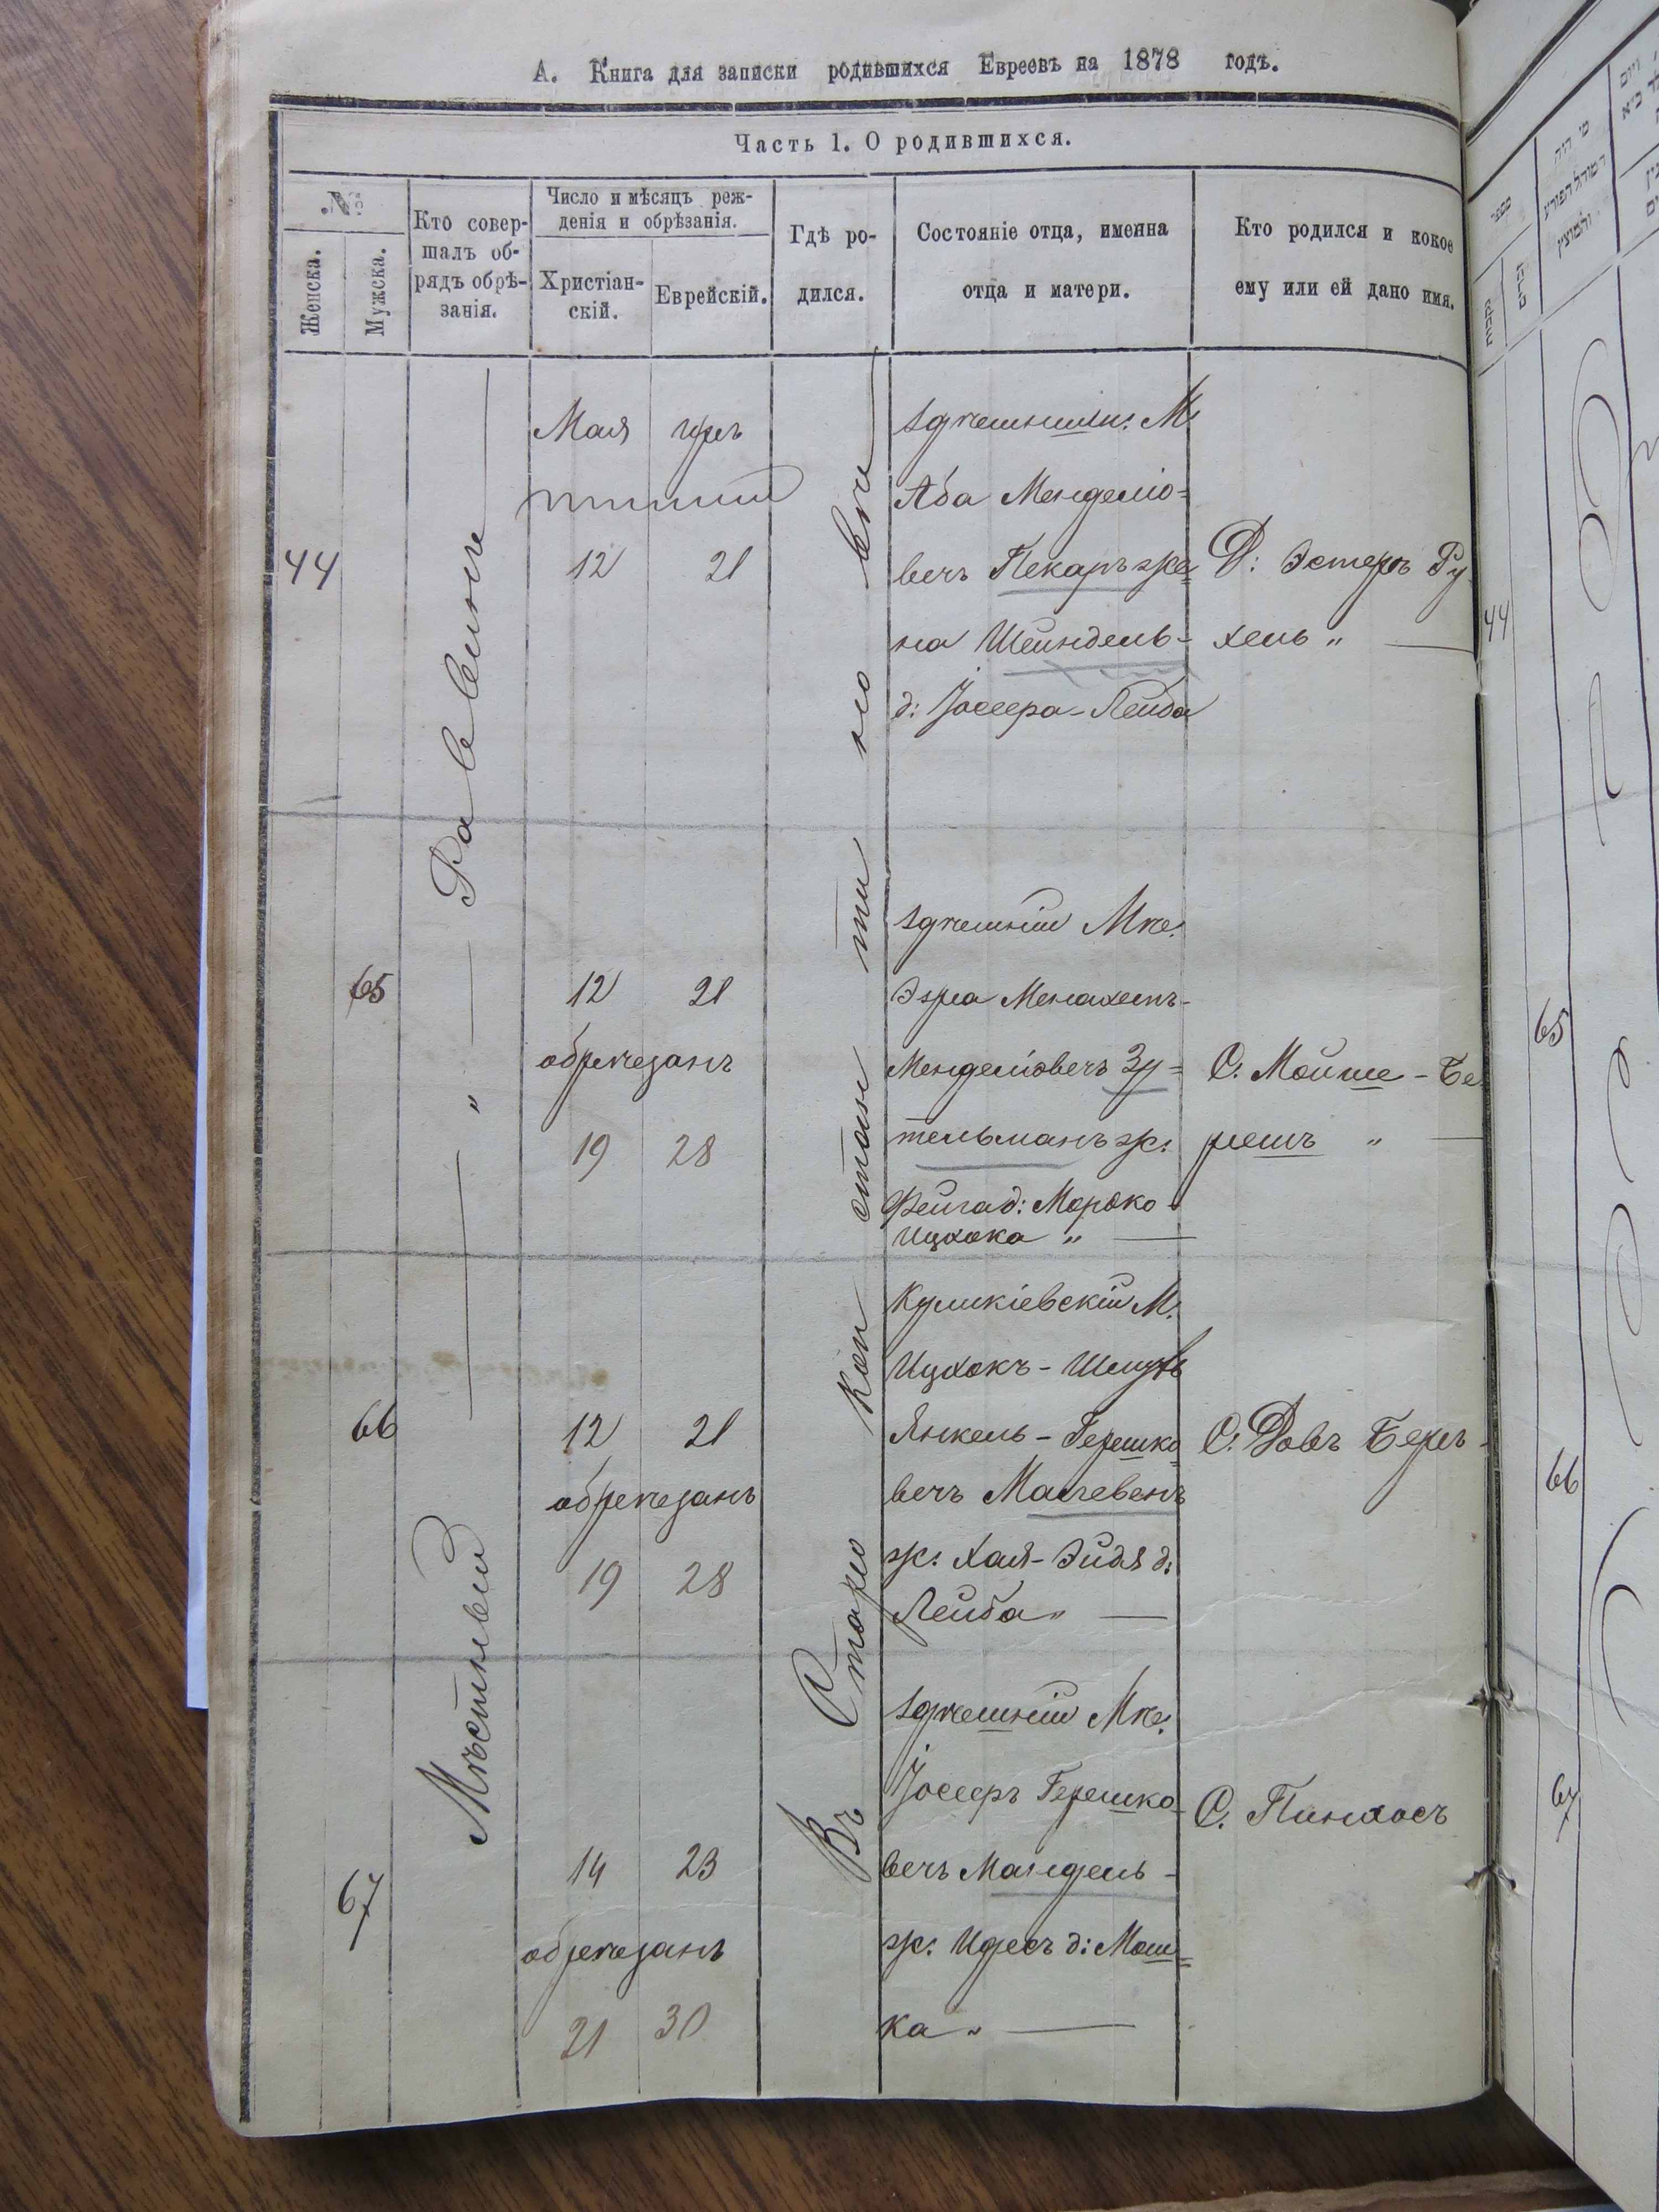 А. Книга для записки родившихся Евреевъ на 1878 годъ.
Часть 1. О родившихся.
№
Женска.
Мужска.
Кто совер-
шалъ об-
рядъ обрѣ-
занія.
Число и мѣсяцъ реж-
денія и обрѣзанія.
Христіан-
скій.
Еврейскій.
Гдѣ ро-
дился.
Состояніе отца, именна
отца и матери.
Кто родился и кокое
ему или ей дано имя.
Мѣстный — „ — Раввинъ —
Въ Старо Константиновѣ
Мая іиръ
44 12 21
здѣшній М.
Аба Менделіо-
вечъ Пекаръ же-
на Шейндель-
д: Іосефа-Лейба
Д: Эстеръ Ру-
хель „ —
65 12 21
обрѣзанъ
19 28
здѣшній Мѣ.
Эзра Менахемъ-
Менделіовечъ Зу-
тельманъ ж.
Фейга д: Мордко
Ицхока „ —
С. Мойше - Бе
решъ „ —
66 12 21
обрѣзанъ
19 28
Куликіевскій М.
Ицхокъ - Шмуль
Янкель - Гершко
вечъ
ж. Хая - Эйдя д:
Лейба „ —
С. Довъ Беръ -
67 14 23
обрѣзанъ
21 30
здѣшній Мѣ.
Іосефъ Гершко-
вечъ Мандель -
ж. Идесъ д: Мош-
ка „ —
С. Пинхосъ
44
65
66
67